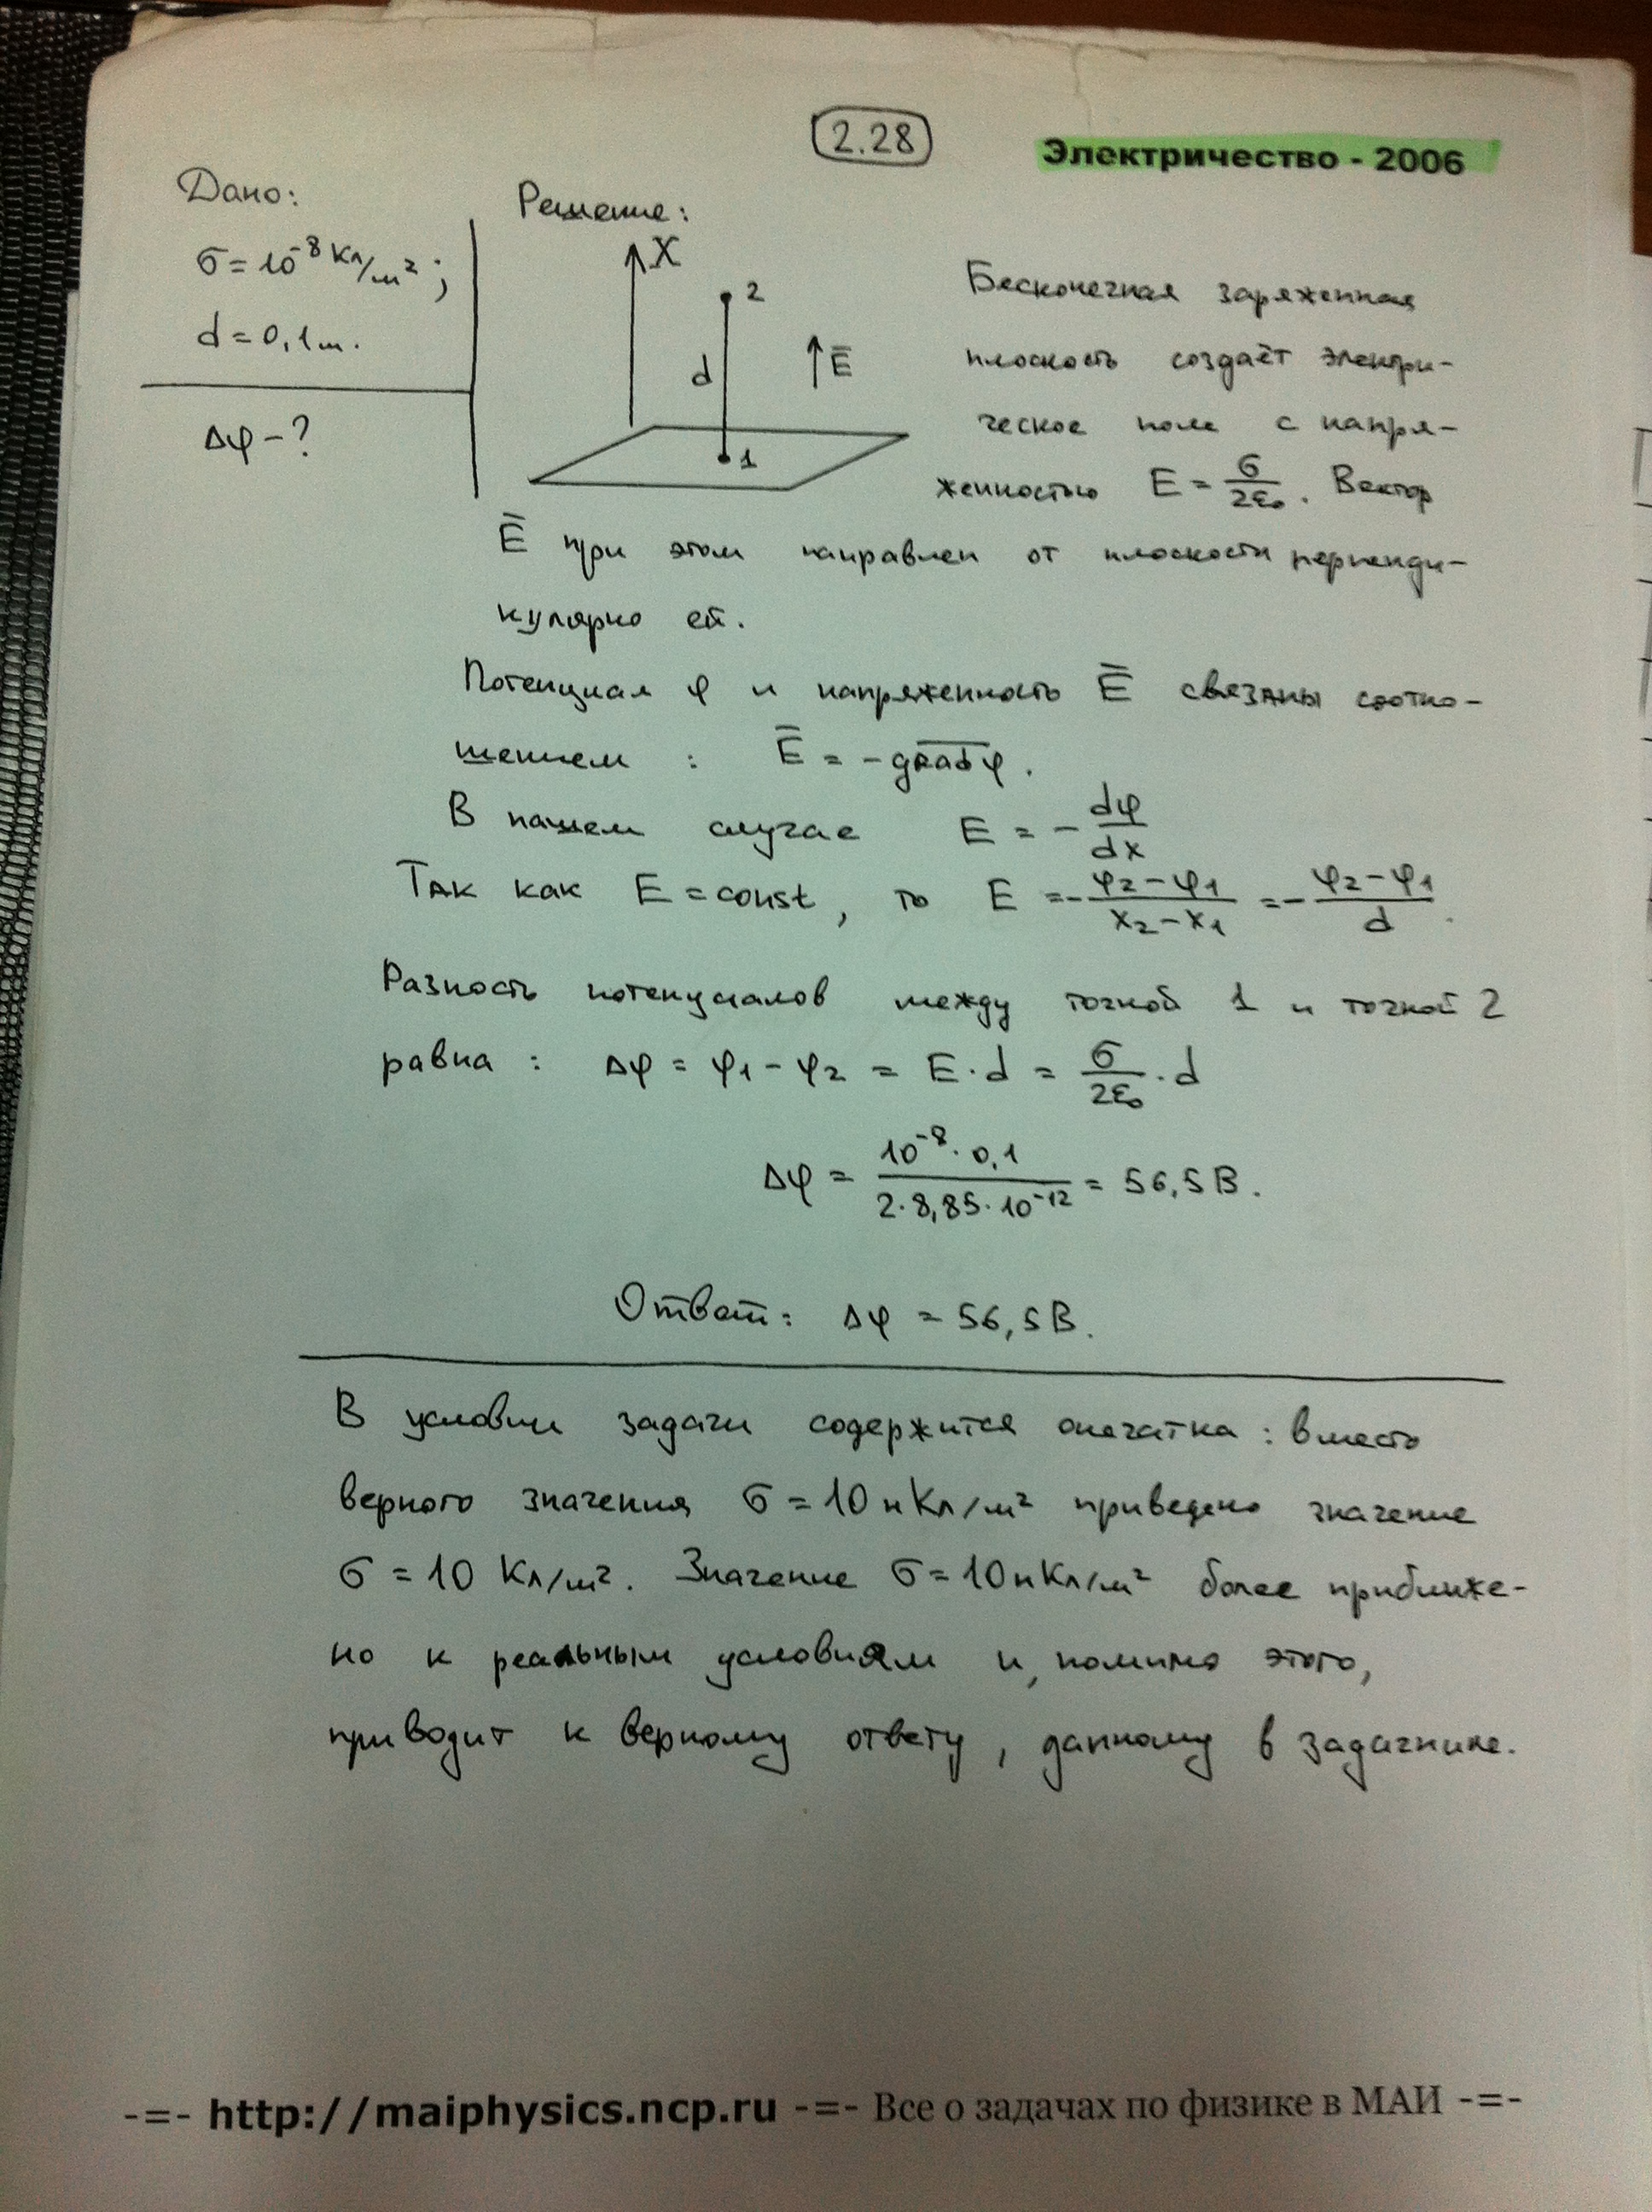 2.28
Электричество - 2006
Дано:
σ = 10⁻⁸ Кл/м²;
d = 0,1 м.
Δφ - ?
Решение:
X
2
d
Ē
1
Бесконечная заряженная
плоскость создаёт электри-
ческое поле с напря-
женностью E = σ/2ε₀. Вектор
Ē при этом направлен от плоскости перпенди-
кулярно ей.
Потенциал φ и напряженность Ē связаны соотно-
шением : Ē = - grad φ.
В нашем случае E = - dφ/dx
Так как E = const, то E = - (φ₂ - φ₁)/(x₂ - x₁) = - (φ₂ - φ₁)/d.
Разность потенциалов между точкой 1 и точкой 2
равна : Δφ = φ₁ - φ₂ = E · d = σ/2ε₀ · d
Δφ = (10⁻⁸ · 0,1)/(2 · 8,85 · 10⁻¹²) = 56,5 В.
Ответ: Δφ = 56,5 В.
В условии задачи содержится опечатка : вместо
верного значения σ = 10 нКл/м² приведено значение
σ = 10 Кл/м². Значение σ = 10 нКл/м² более приближе-
но к реальным условиям и, помимо этого,
приводит к верному ответу, данному в задачнике.
-=- http://maiphysics.ncp.ru -=- Все о задачах по физике в МАИ -=-